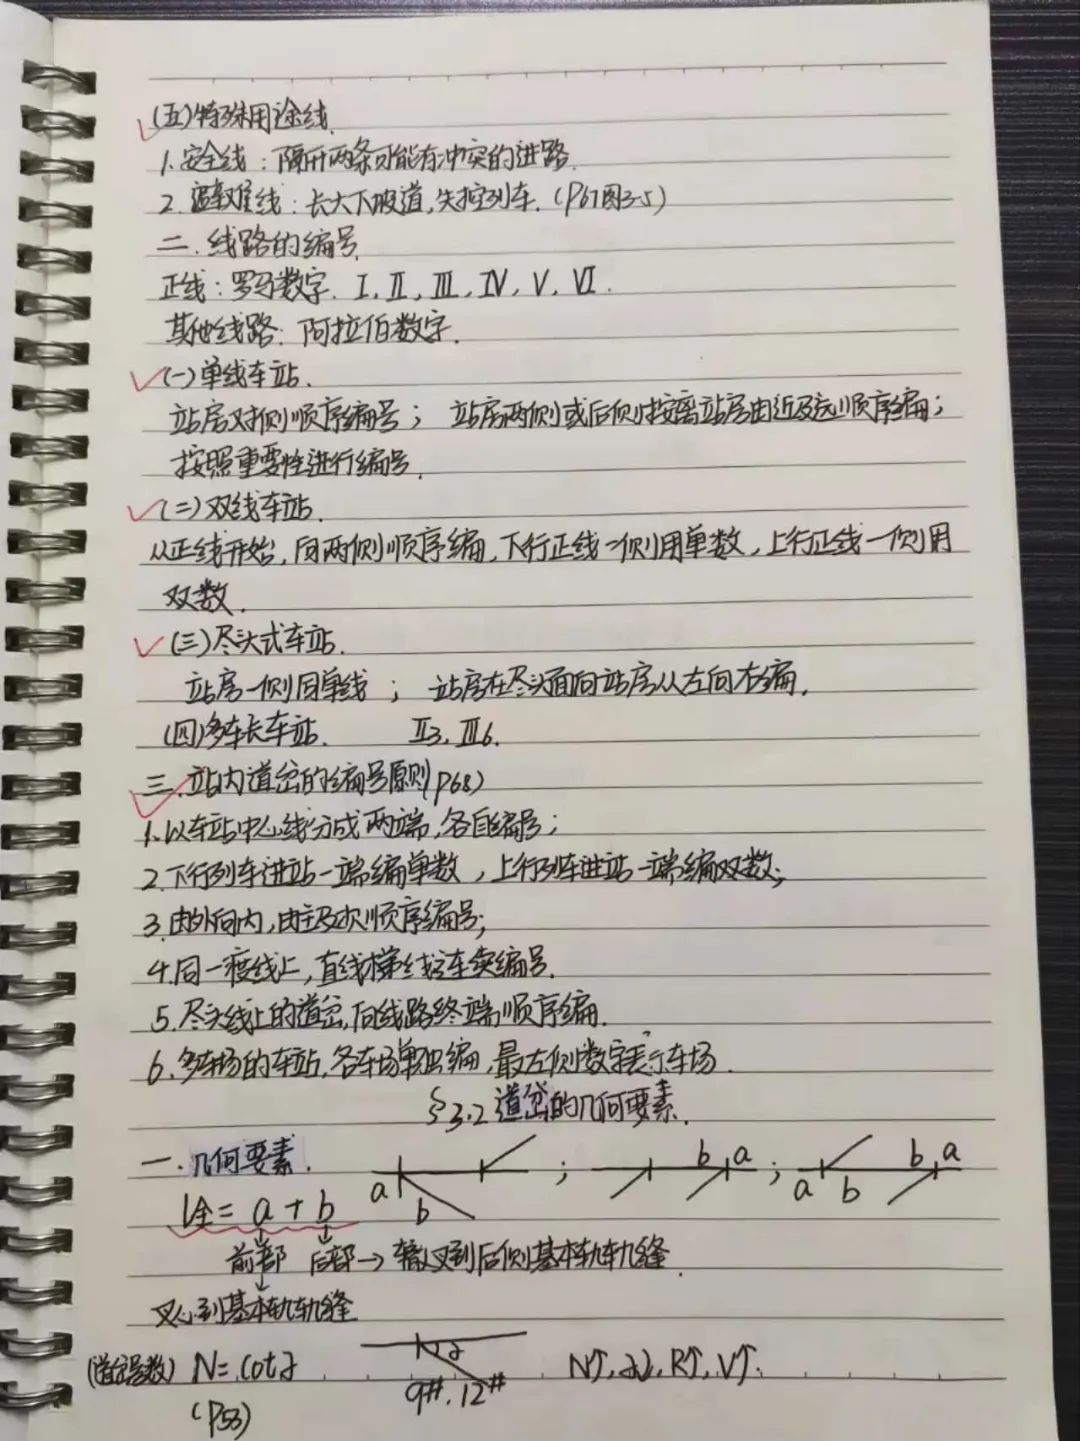 (五)特殊用途线.
1.安全线:隔开两条可能有冲突的进路.
2.避难线:长大下坡道,失控列车.(P67图3-5)
二.线路的编号.
正线:罗马数字. I, II, III, IV, V, VI.
其他线路:阿拉伯数字.
(一)单线车站.
站房对侧顺序编号; 站房两侧或后侧按离站房由近及远顺序编;
按照重要性进行编号.
(二)双线车站.
从正线开始,向两侧顺序编,下行正线一侧用单数,上行正线一侧用
双数.
(三)尽头式车站.
站房一侧同单线; 站房在尽头面向站房从左向右编.
(四)多车长车站. II3, III6.
三.站内道岔的编号原则(P68)
1.以车站中心线分成两端,各自编号;
2.下行列车进站一端编单数,上行列车进站一端编双数;
3.由外向内,由主及次顺序编号;
4.同一渡线上,直线梯线连续编号.
5.尽头线上的道岔,向线路终端顺序编.
6.多车场的车站,各车场单独编,最左侧数字表示车场.
§3.2 道岔的几何要素.
一.几何要素. a b ; b a ; a b b a
l全= a + b
前部 后部→辙叉到后侧基本轨轨缝.
叉心到基本轨轨缝
(道岔号数) N= cotα α N↑, α↓, R↑, V↑.
9#. 12#
(P53)